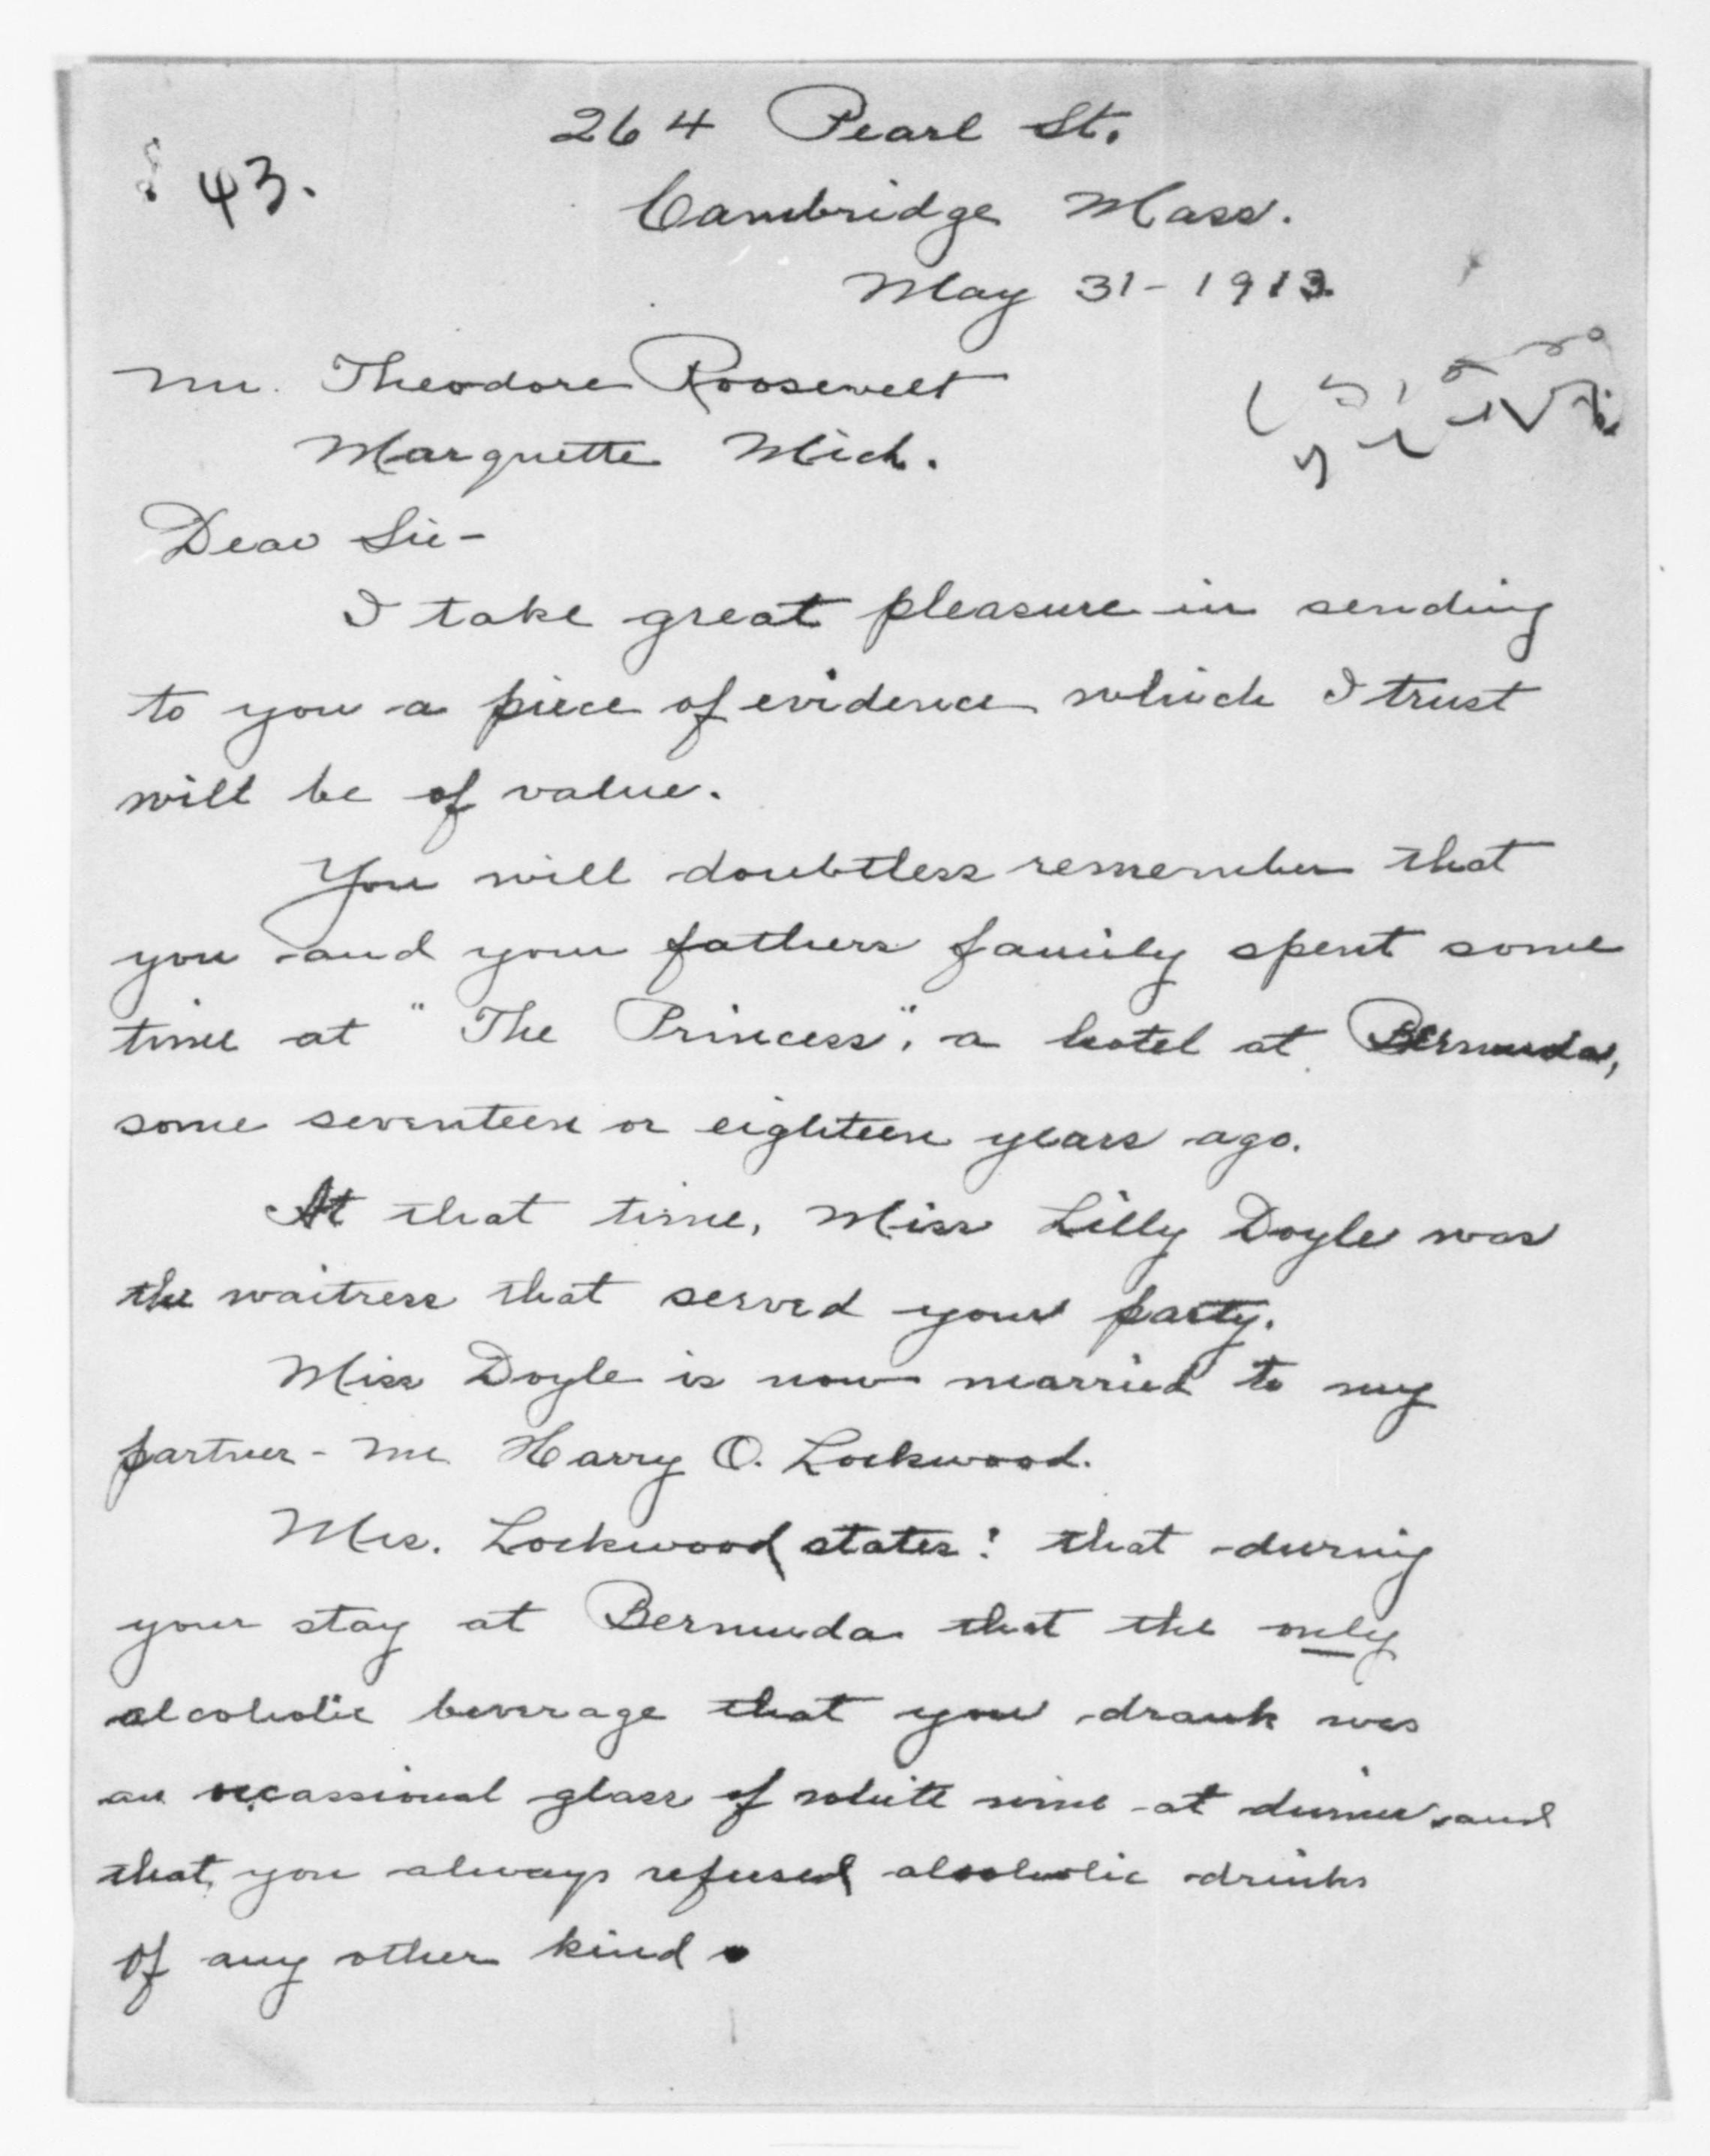 264 Pearl St.
43.
Cambridge Mass.
May 31 - 1913.
Mr. Theodore Roosevelt
Marquette Mich.
Dear Sir -
I take great pleasure in sending
to you a piece of evidence which I trust
will be of value.
You will doubtless remember that
you and your fathers family spent some
time at "The Princess", a hotel at Bermuda,
some seventeen or eighteen years ago.
At that time, Miss Lilly Doyle was
the waitress that served your party.
Miss Doyle is now married to my
partner - Mr. Harry O. Lockwood.
Mrs. Lockwood states: that during
your stay at Bermuda that the only
alcoholic beverage that you drank was
an occassional glass of white wine at dinner and
that you always refused alcoholic drinks
of any other kind.